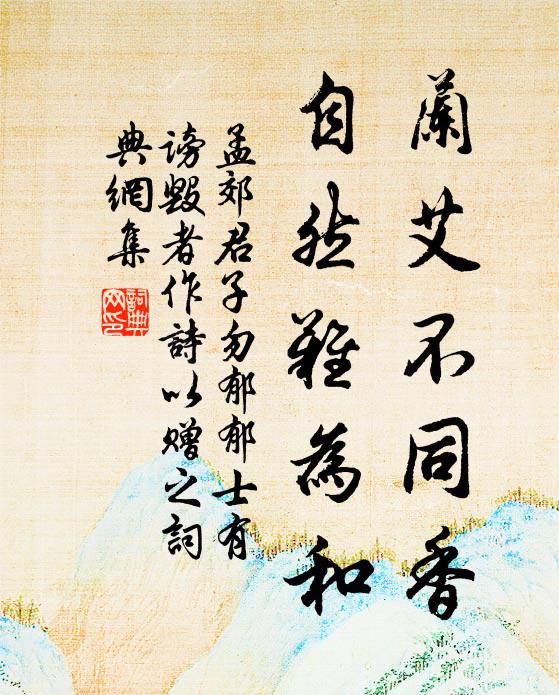 蘭艾不同香
自然難為和
孟郊君子勿郁郁士有
謗毀者作詩以贈之詞
典網集
詞典
网印